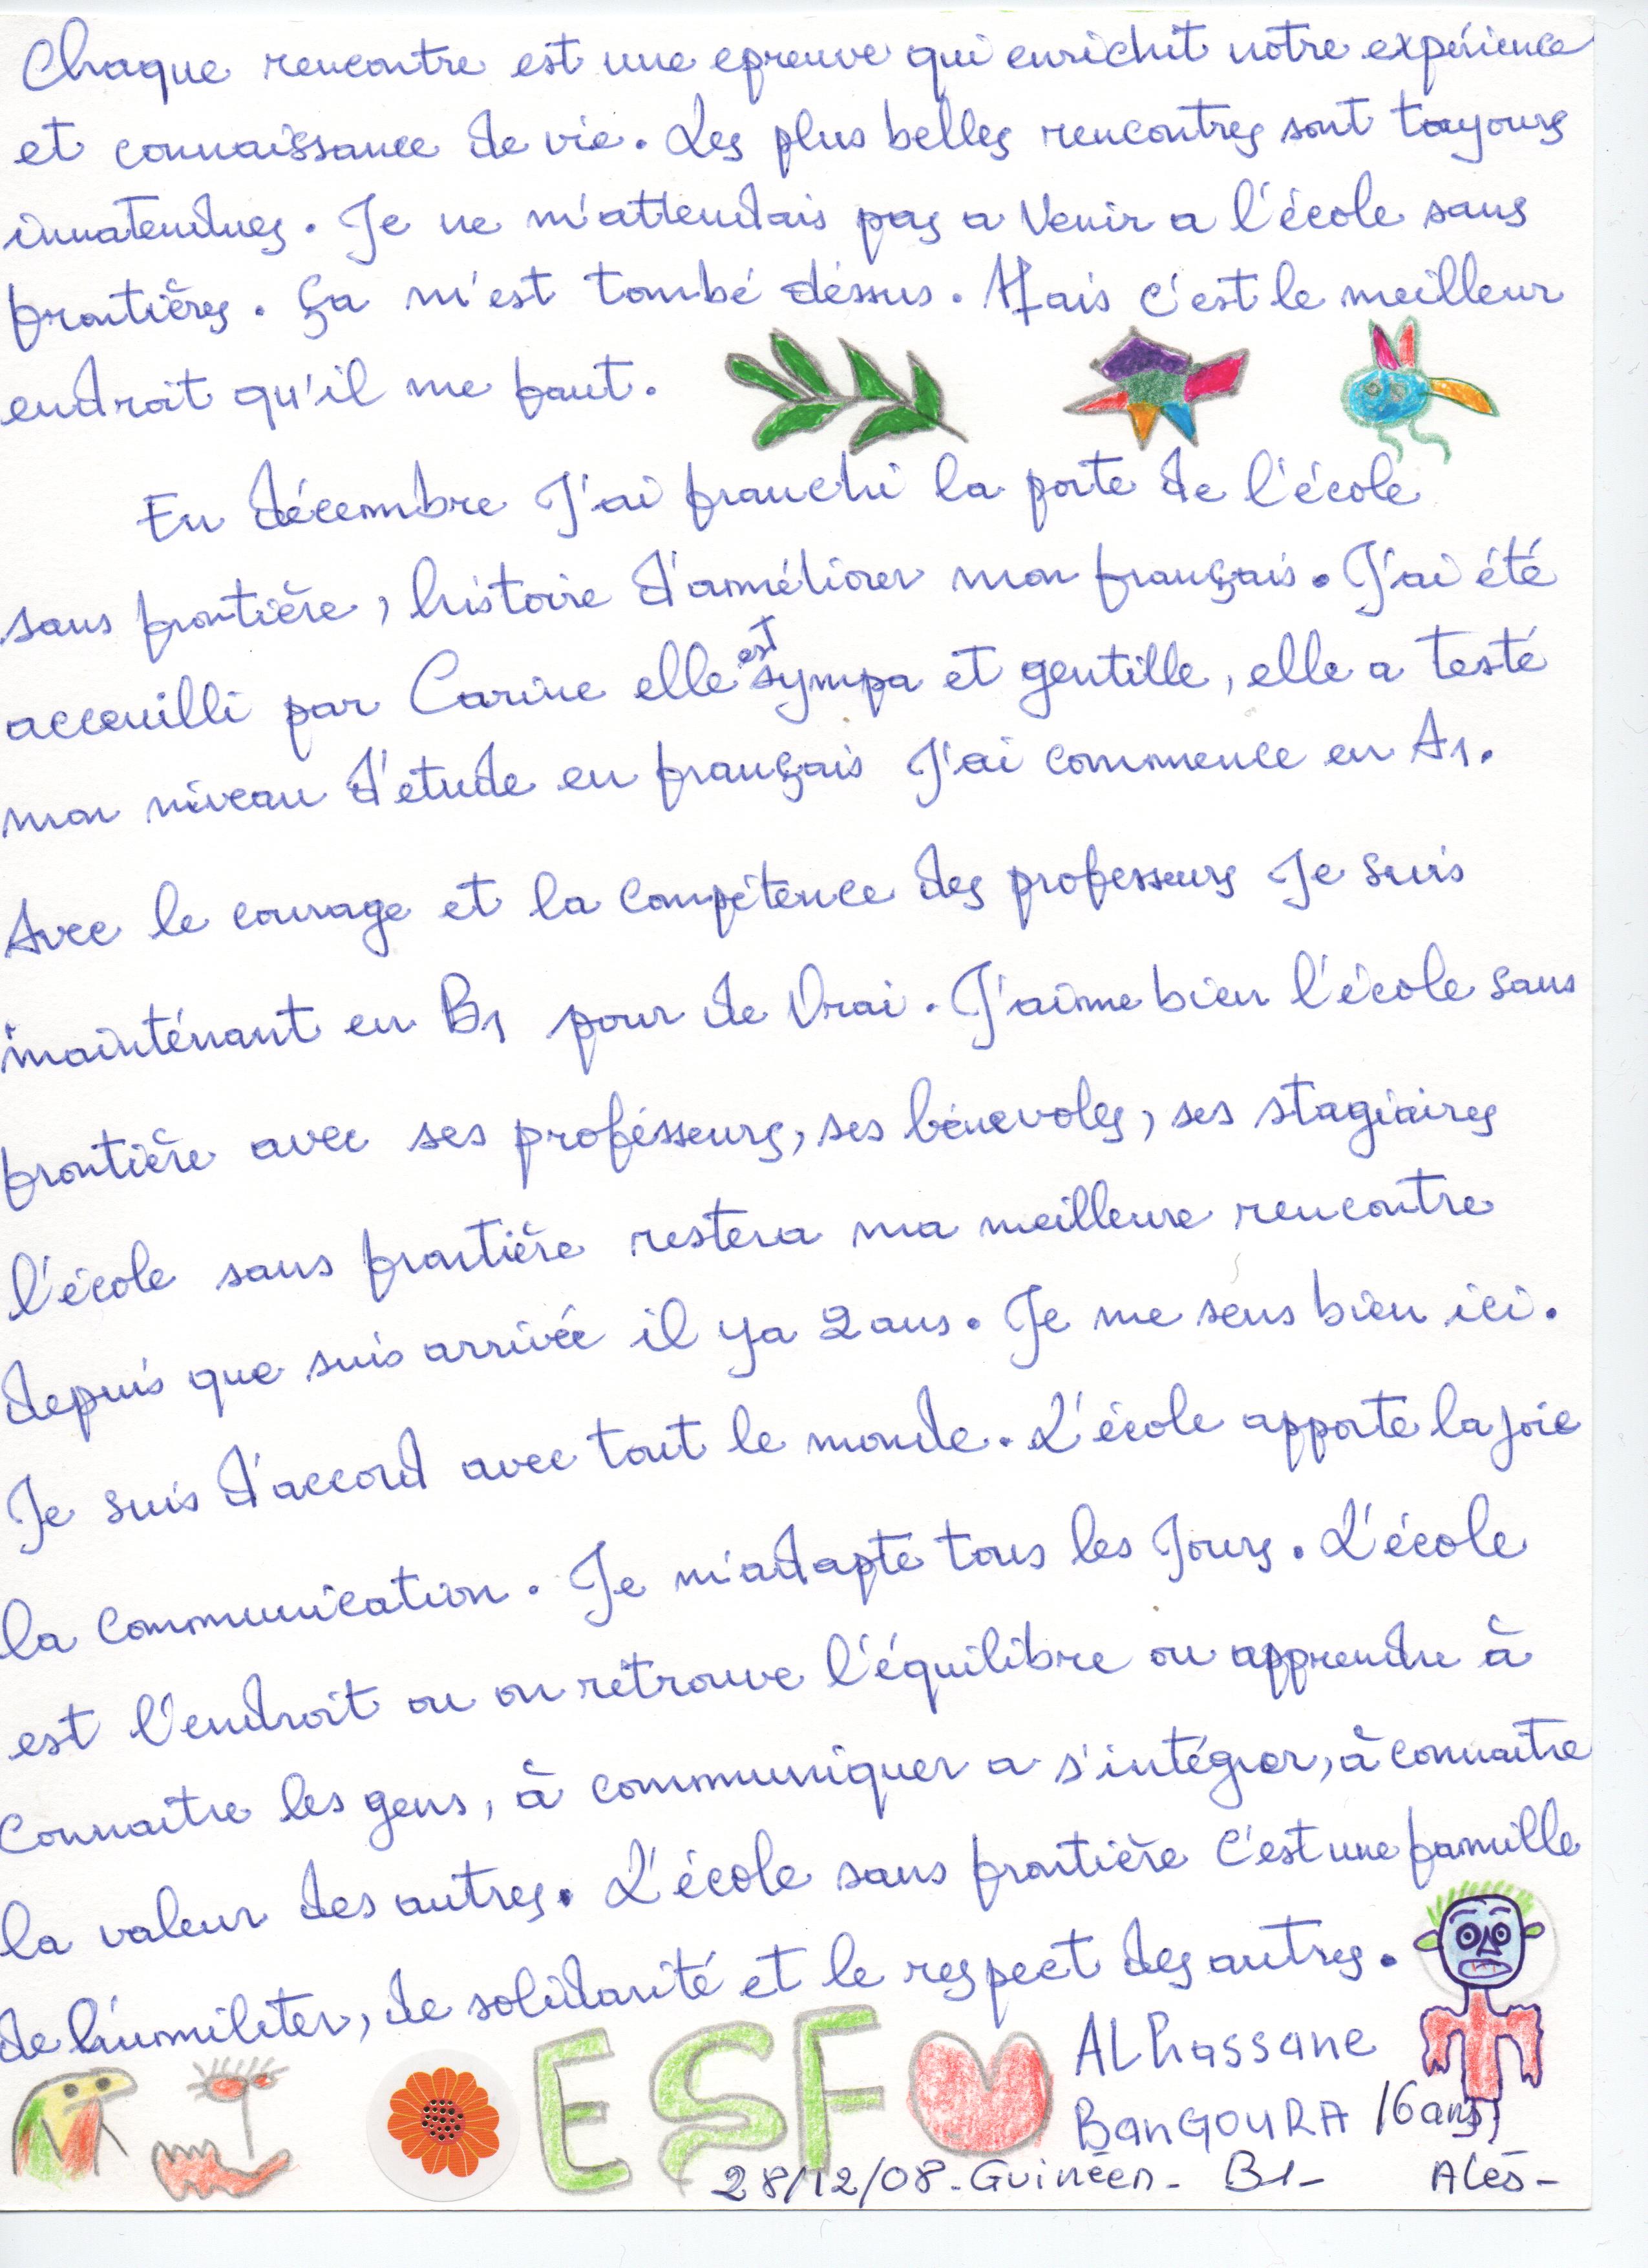 Chaque rencontre est une epreuve qui enrichit notre expérience
et connaissance de vie. Les plus belles rencontres sont toujours
innatendues. Je ne m'attendais pas a venir a l'école sans
frontières. Ça m'est tombé déssus. Mais c'est le meilleur
endroit qu'il me faut.
En décembre J'ai franchi la porte de l'école
sans frontière, histoire d'améliorer mon français. J'ai été
acceuilli par Carine elle est sympa et gentille, elle a testé
mon niveau d'etude en français J'ai commence en A1.
Avec le courage et la compétence des professeurs Je suis
mainténant en B1 pour de vrai. J'aime bien l'école sans
frontière avec ses profésseurs, ses bénevoles, ses stagiaires
l'école sans frontière restera ma meilleure rencontre
depuis que suis arrivée il ya 2 ans. Je me sens bien ici.
Je suis d'accord avec tout le monde. L'école apporte la joie
la communication. Je m'adapte tous les Jours. L'école
est l'endroit ou on retrouve l'équilibre ou apprendre à
connaitre les gens, à communiquer a s'intégrer, à connaitre
la valeur des autres. L'école sans frontière c'est une famille
de l'humiliter, de solidarité et le respect des autres.
ESF
ALhassane
BanGOURA 16 ans
28/12/08 - Guinéen - B1 - Alès -